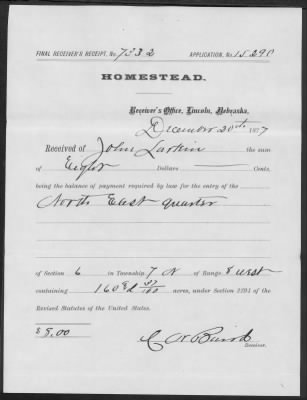 FINAL RECEIVER'S RECEIPT, No. 7332 APPLICATION, No. 15290
HOMESTEAD.
Receiver's Office, Lincoln, Nebraska.
December 20th 1877
Received of John Larkin the sum
of Eight Dollars Cents,
being the balance of payment required by law for the entry of the
North East quarter
of Section 6 in Township 7 N of Range 8 west
containing 160 & 37/100 acres, under Section 2291 of the
Revised Statutes of the United States.
$ 8.00
Receiver.